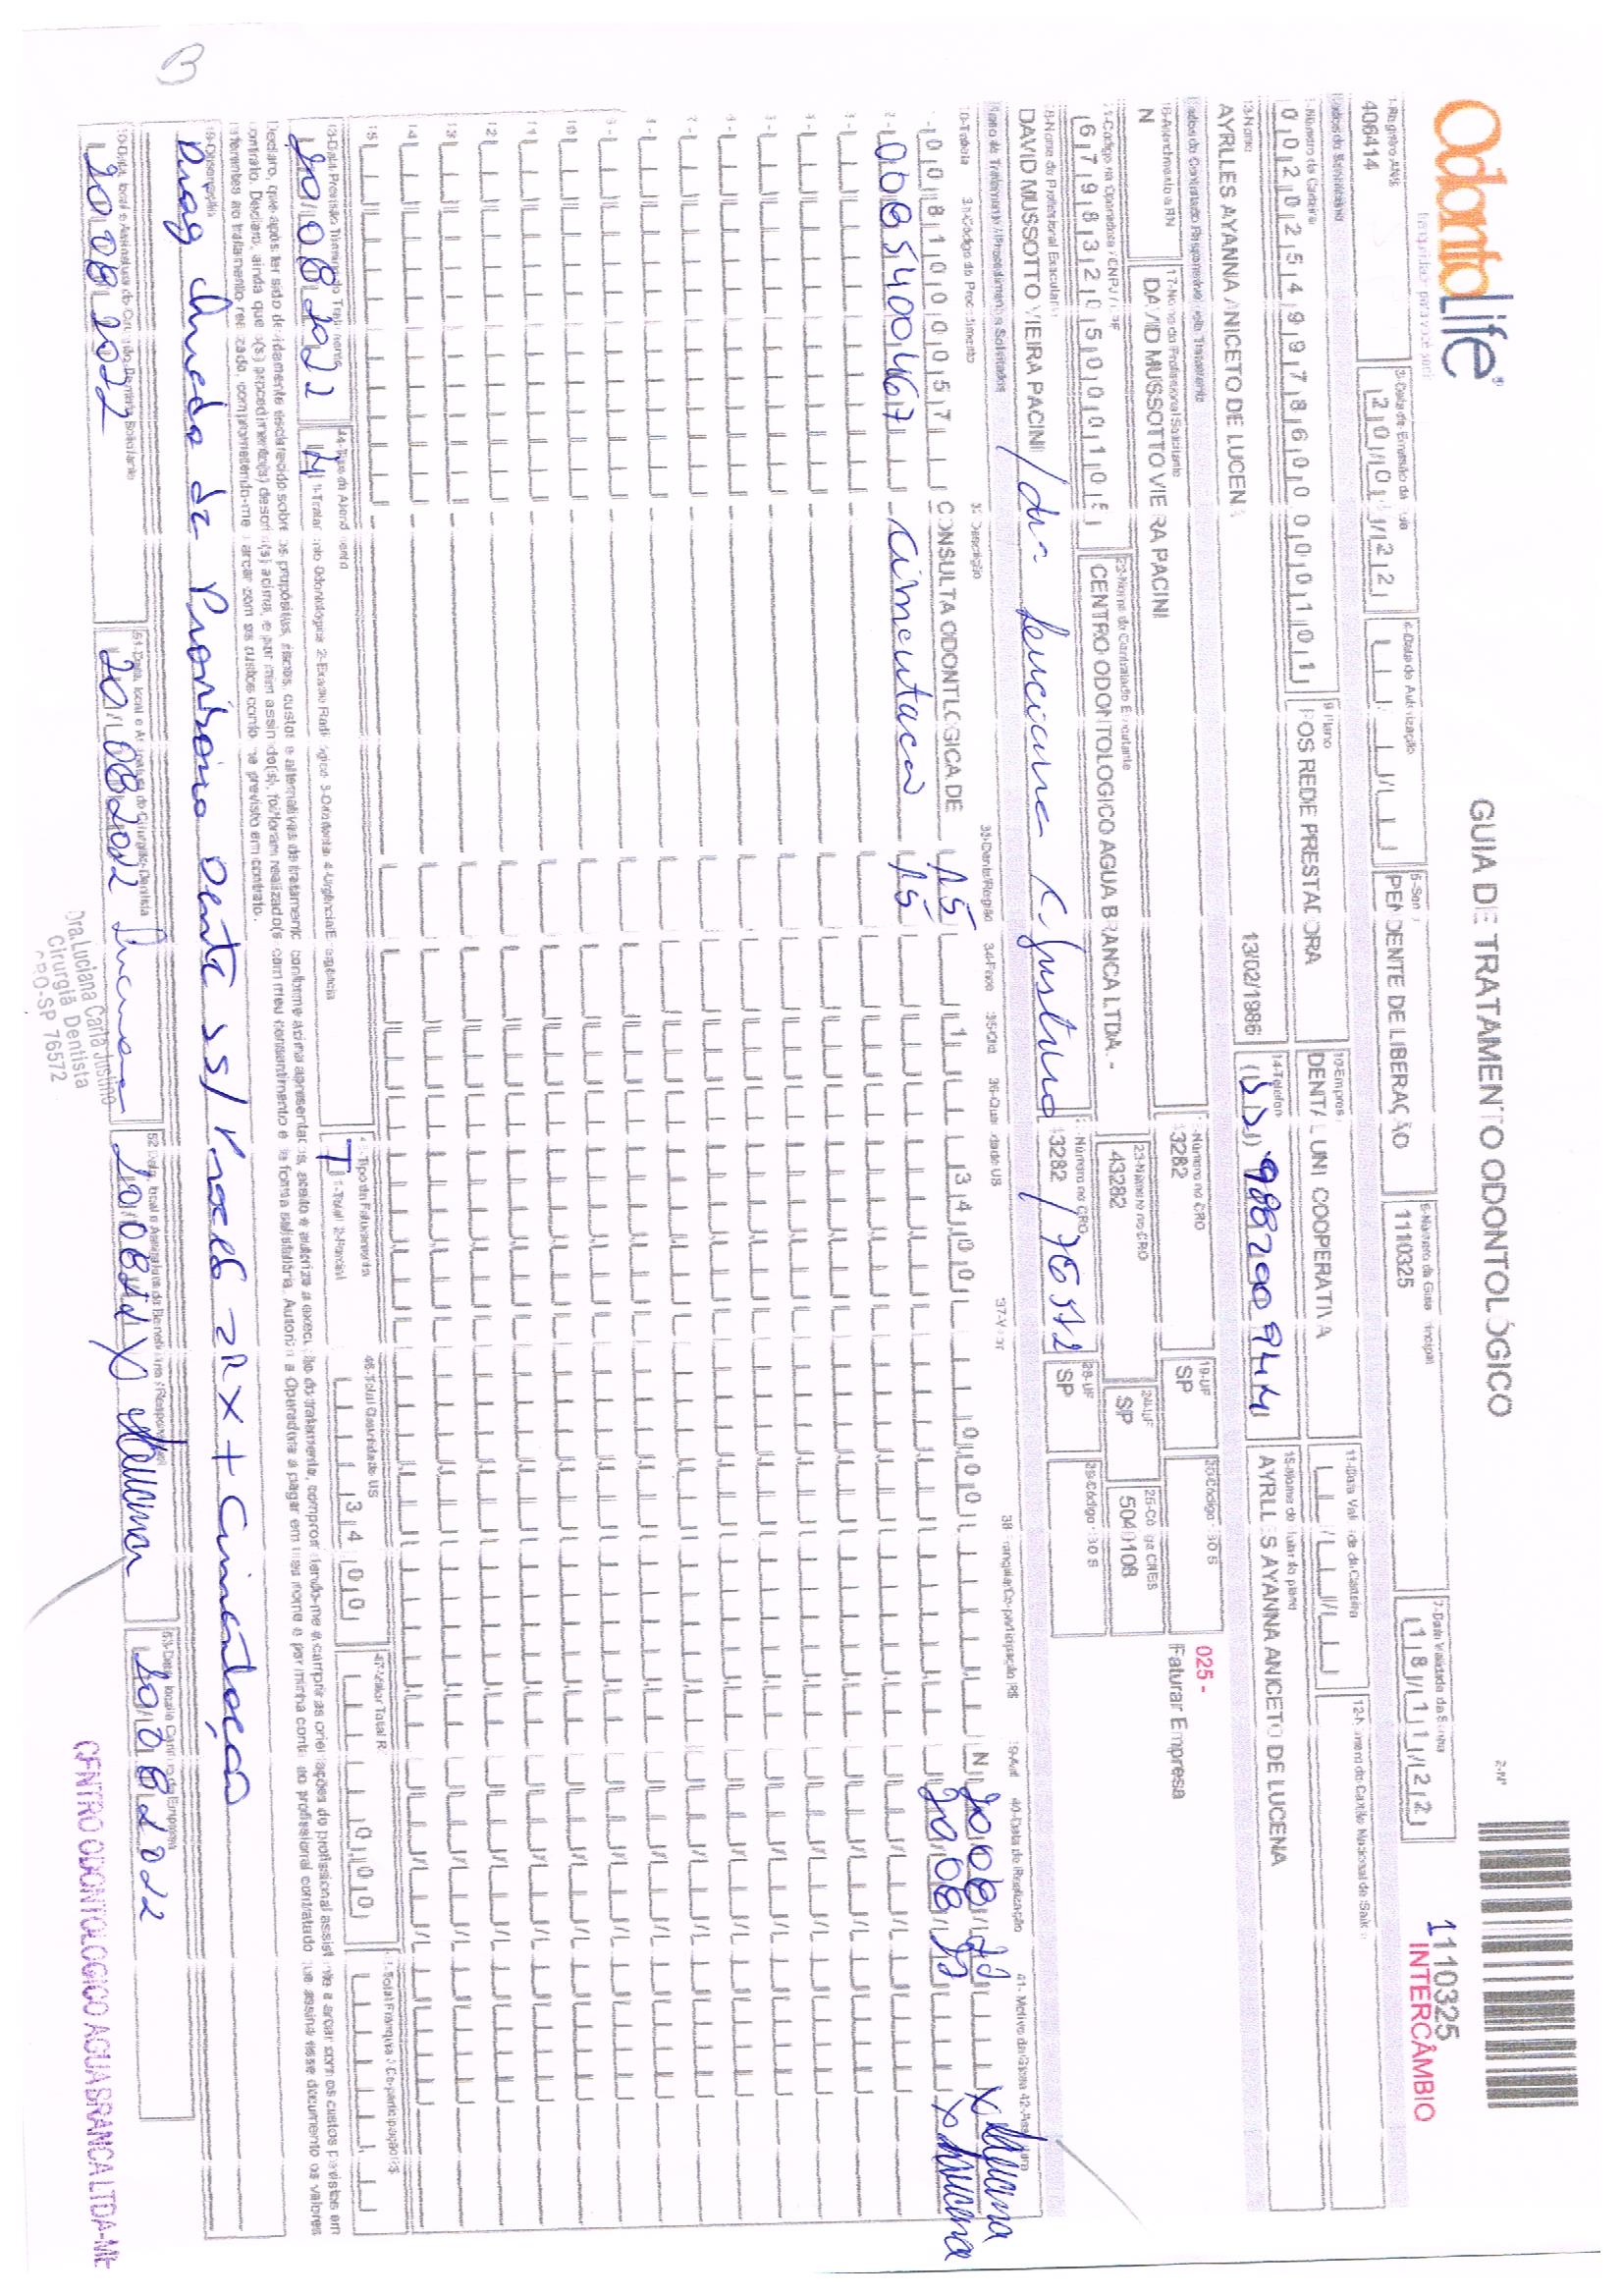 OdontoLife®
GUIA DE TRATAMENTO ODONTOLÓGICO
2-Nº
1110325
INTERCÂMBIO
1-Registro ANS
406414
3-Data de Emissão da Guia
4-Data de Autorização
5-Senha
PENDENTE DE LIBERAÇÃO
6-Número da Guia Principal
1110325
7-Data Validade da Senha
18/11/22
8-Número da Carteira
0020254997860000101
9-Plano
POS REDE PRESTADORA
10-Empresa
DENTAL UNI COOPERATIVA
11-Data Validade da Carteira
12-Número do Cartão Nacional de Saúde
13-Nome
AYRLLES AYANNA ANICETO DE LUCENA
13/02/1986
14-Telefone
15-Nome do Titular do plano
AYRLLES AYANNA ANICETO DE LUCENA
Dados do Contratado Responsável pelo Tratamento
16-Atendimento a RN
N
17-Nome do Profissional Solicitante
DAVID MUSSOTTO VIEIRA PACINI
Número no CRO
43282
19-UF
SP
20-Código CBO S
025 -
Faturar Empresa
21-Código na Operadora / CNPJ / CPF
22-Nome do Contratado Executante
CENTRO ODONTOLOGICO AGUA BRANCA LTDA. -
23-Número no CRO
43282
24-UF
SP
25-Código CNES
5040108
26-Nome do Profissional Executante
DAVID MUSSOTTO VIEIRA PACINI / dra Luciana C. Justino
Número no CRO
43282 / 76572
28-UF
SP
29-Código CBO S
Plano de Tratamento / Procedimentos Solicitados
30-Tabela 31-Código do Procedimento 32-Descrição 33-Dente/Região 34-Face 35-Qtd 36-Quantidade US 37-Valor 38-Franquia/Co-participação R$ 39-Aut 40-Data de Realização 41-Motivo da Glosa 42-Assinatura
1- 00 81000057 CONSULTA ODONTLOGICA DE 15 1 34,00 0,00 N 20/08/22 x Lucena
2- 00 85400467 Cimentação 15 20/08/22 x Lucena
3-
4-
5-
6-
7-
8-
9-
10
11
12
13
14
15
43-Data Previsão Término do Tratamento
20/08/2022
44-Tipo de Atendimento
1-Tratamento Odontológico 2-Exame Radiológico 3-Ortodontia 4-Urgência/Emergência
45-Tipo de Faturamento
T 1-Total 2-Parcial
46-Total Quantidade US
34,00
47-Valor Total R$
0,00
48-Total Franquia / Co-participação R$
Declaro, que após ter sido devidamente esclarecido sobre os propósitos, riscos, custos e alternativas de tratamento, conforme acima apresentados, aceito e autorizo a execução do tratamento, comprometendo-me a cumprir as orientações do profissional assistente e arcar com os custos previstos em
contrato. Declaro, ainda que o(s) procedimento(s) descrito(s) acima, e por mim assinado(s), foi/foram realizado(s) com meu consentimento e de forma satisfatória. Autorizo a Operadora a pagar em meu nome e por minha conta, ao profissional contratado que assina esse documento, os valores
referentes ao tratamento realizado, comprometendo-me a arcar com os custos conforme previsto em contrato.
49-Observação
Queda de Provisório dente 15/ + Cimentação
50-Data, local e Assinatura do Cirurgião-Dentista Solicitante
20/08/2022
51-Data, local e Assinatura do Cirurgião-Dentista
20/08/2022 Luciana
52-Data, local e Assinatura do Beneficiário / Responsável
20/08/22 X Lucena
53-Data, local e Carimbo da Empresa
20/08/2022
Dra. Luciana Carla Justino
Cirurgiã Dentista
CRO-SP 76572
CENTRO ODONTOLOGICO AGUA BRANCA LTDA-ME
B